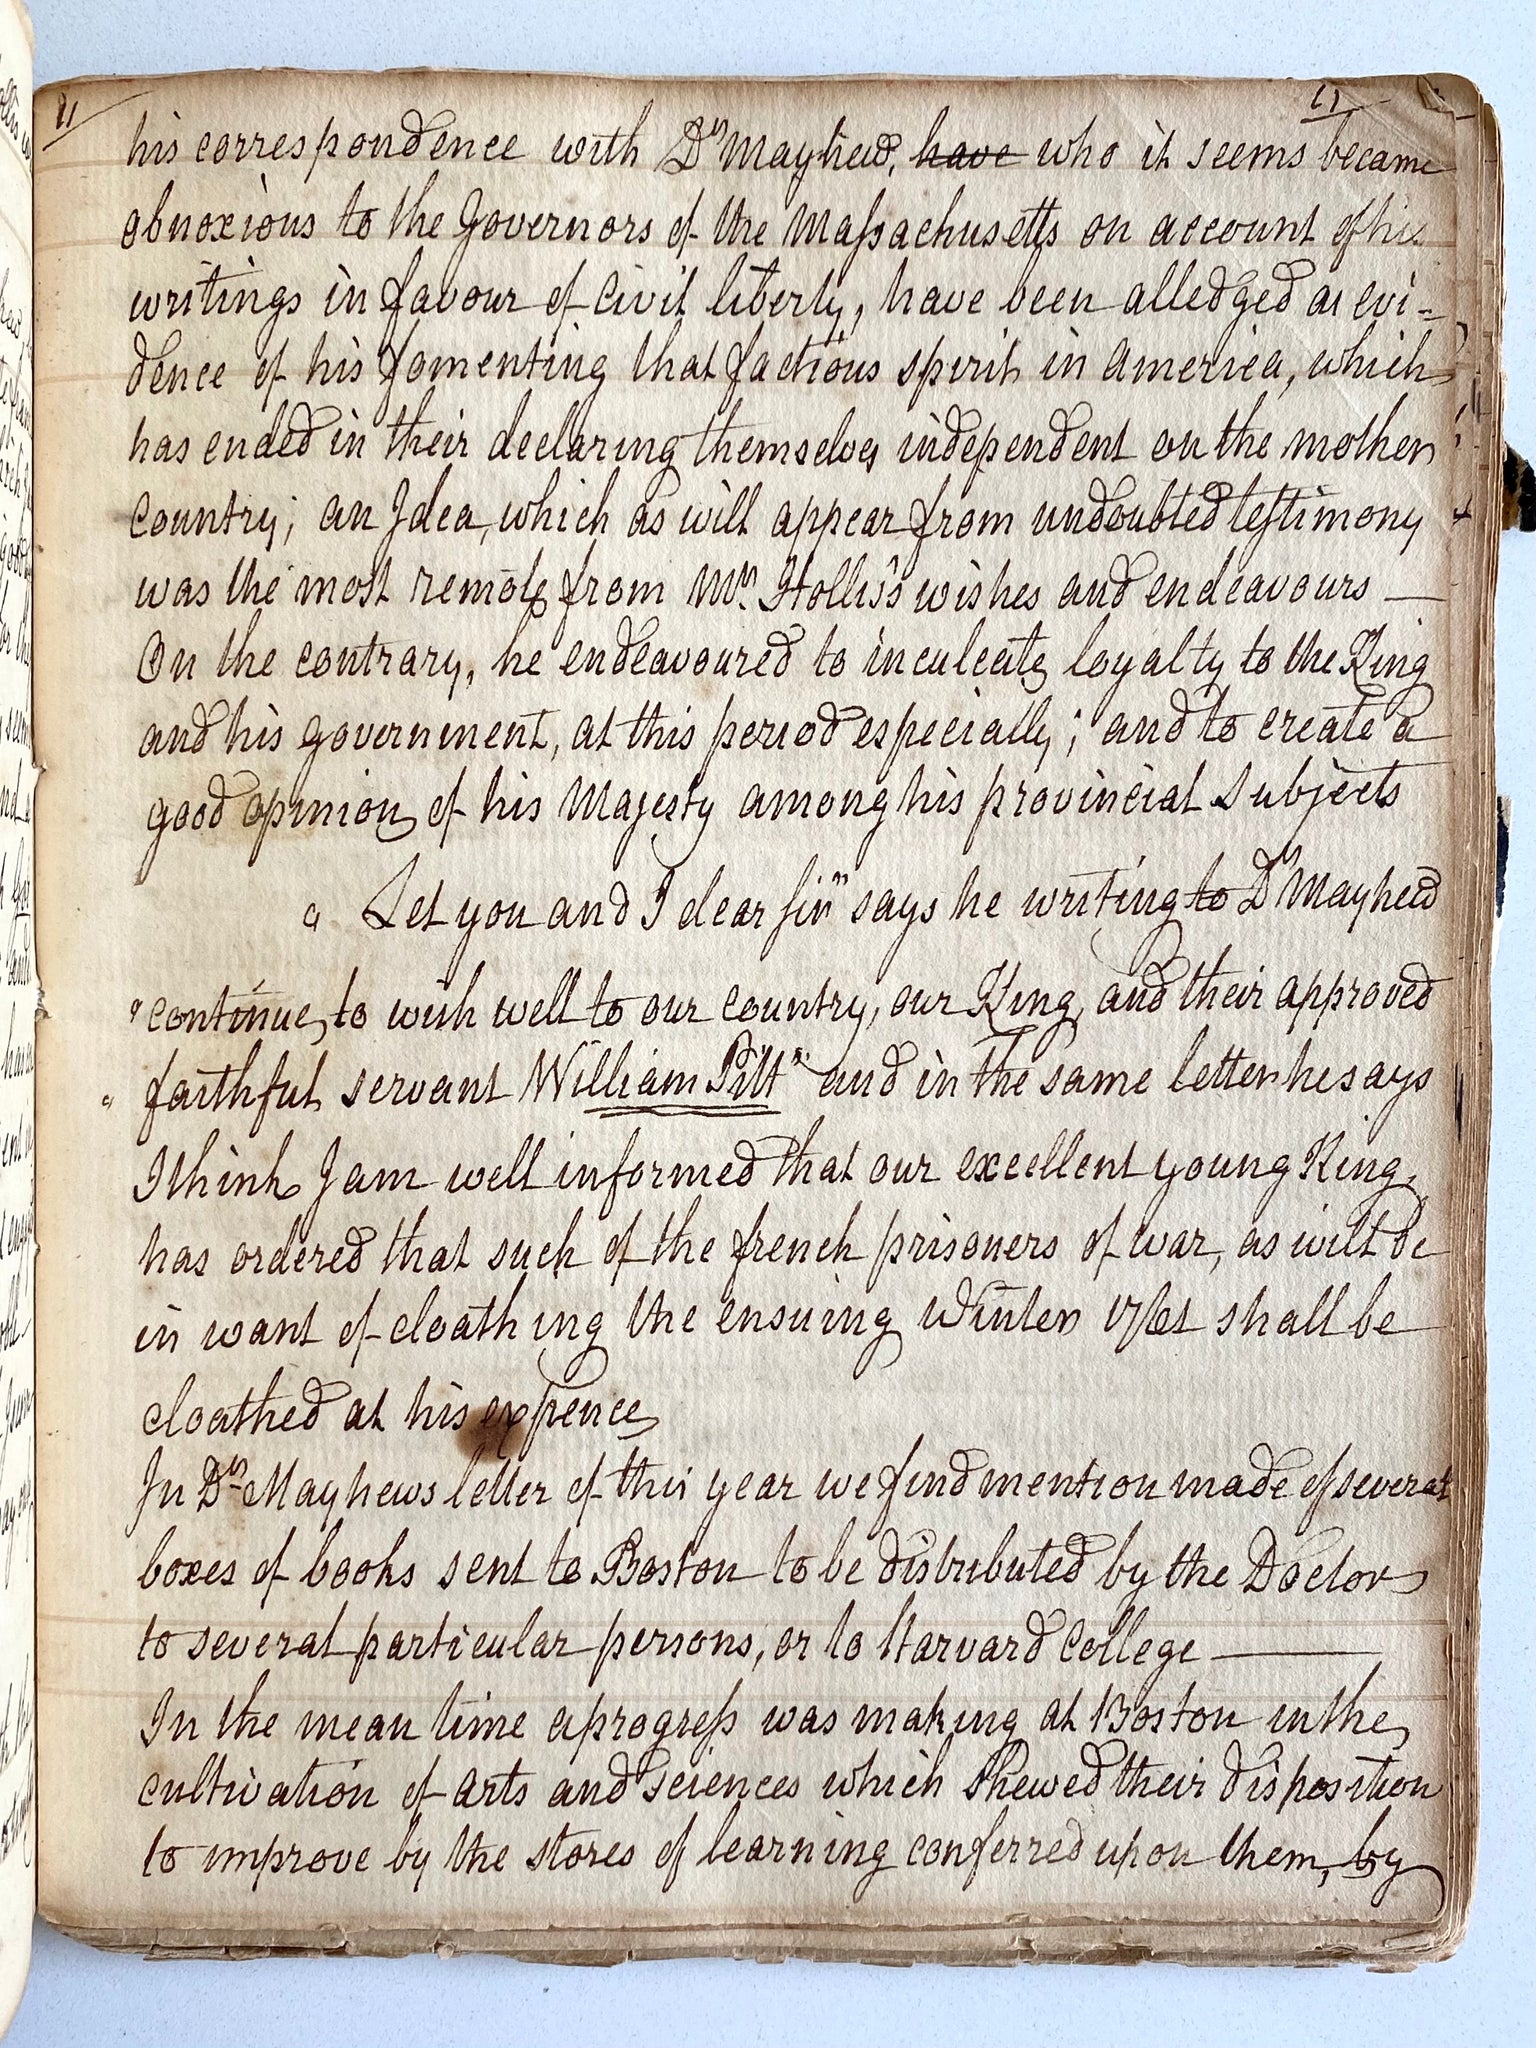 his correspondence with Dr Mayhew, have who it seems became
obnoxious to the Governors of the Massachusetts on account of his
writings in favour of Civil liberty, have been alledged as evi=
dence of his fomenting that factious spirit in America, which
has ended in their declaring themselves independent on the mother
Country; an Idea, which as will appear from undoubted testimony
was the most remote from Mr. Hollis's wishes and endeavours —
On the contrary, he endeavoured to inculcate loyalty to the King
and his government, at this period especially; and to create a
good opinion of his Majesty among his provincial subjects
" Let you and I dear sir" says he writing to Dr Mayhew
"continue to wish well to our country, our King, and their approved
" faithful servant William Pitt" and in the same letter he says
I think I am well informed that our excellent young King,
has ordered that such of the french prisoners of war, as will be
in want of cloathing the ensuing Winter 1761 shall be
cloathed at his expence
In Dr Mayhews letter of this year we find mention made of several
boxes of books sent to Boston to be distributed by the Doctor
to several particular persons, or to Harvard College —
In the mean time a progress was making at Boston in the
cultivation of arts and sciences which shewed their disposition
to improve by the stores of learning conferred upon them, by